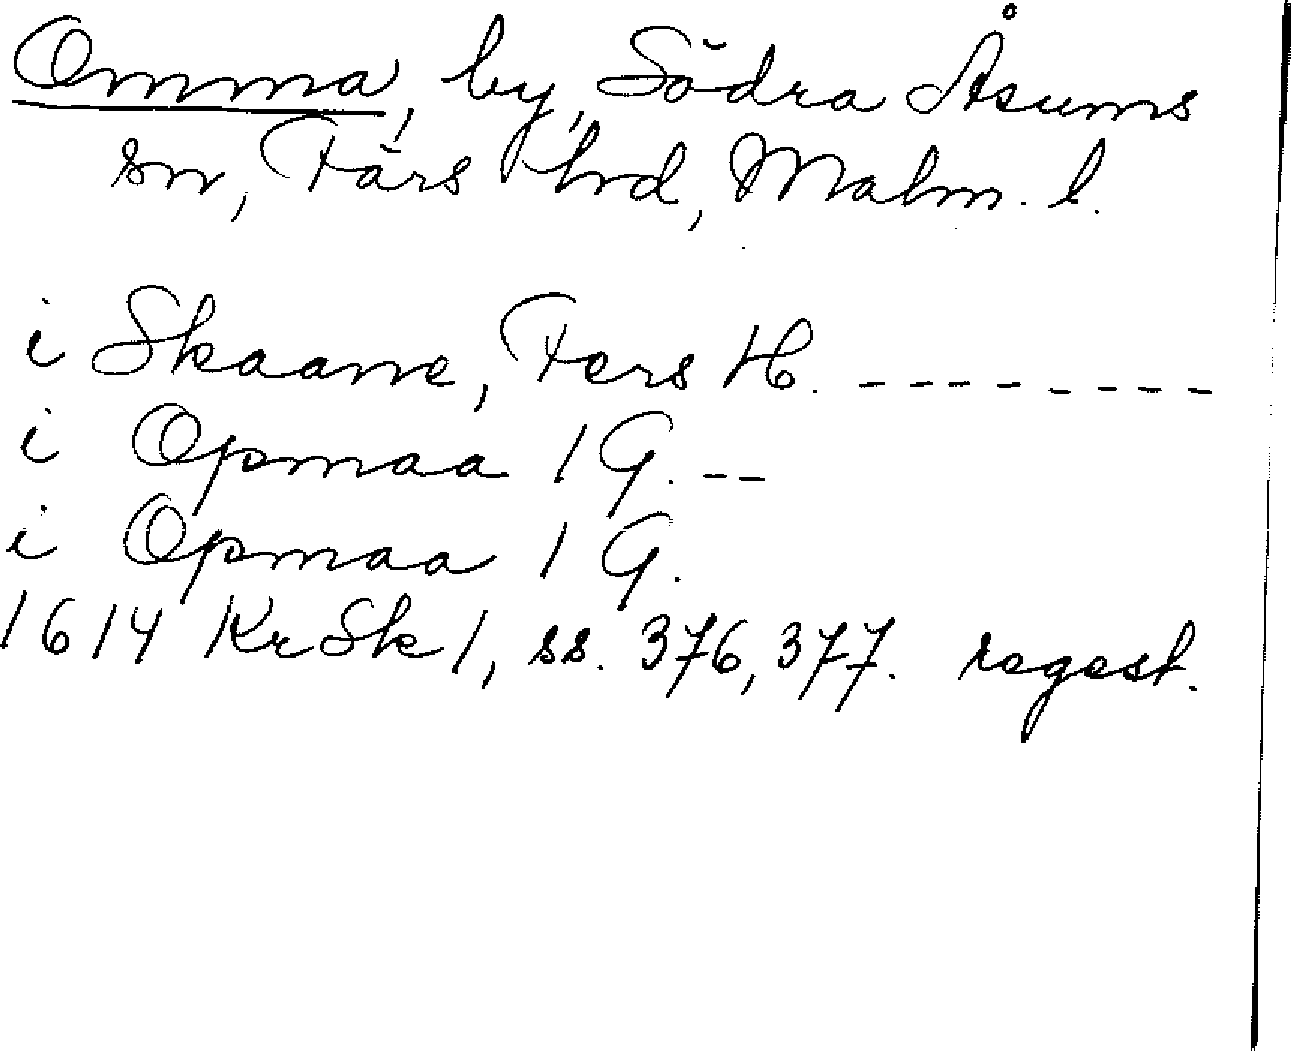 Omma, by, Södra Åsums
sn, Färs hrd, Malm. l.
i Skaane, Fers H. --------
i Opmaa 1 G. --
i Opmaa 1 G.
1614 KrSk 1, ss. 376, 377. regest.